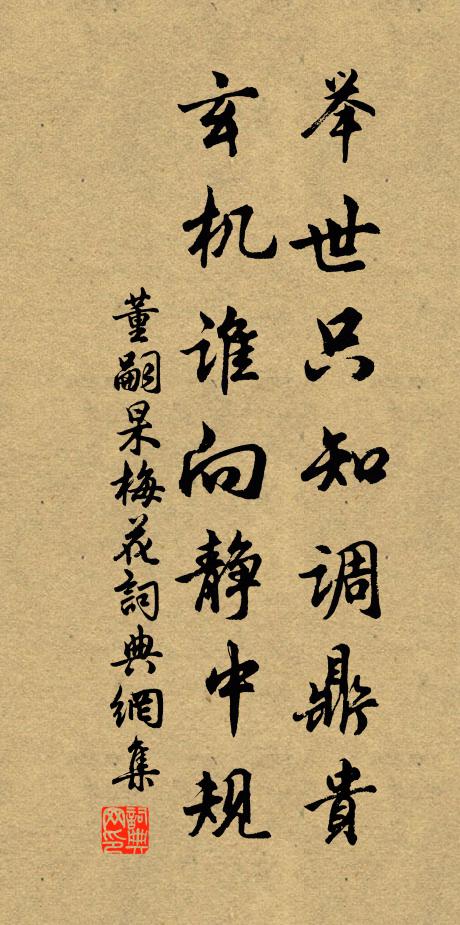 举世只知调鼎貴
玄机谁向静中规
董嗣杲梅花詞典網集
詞典网印